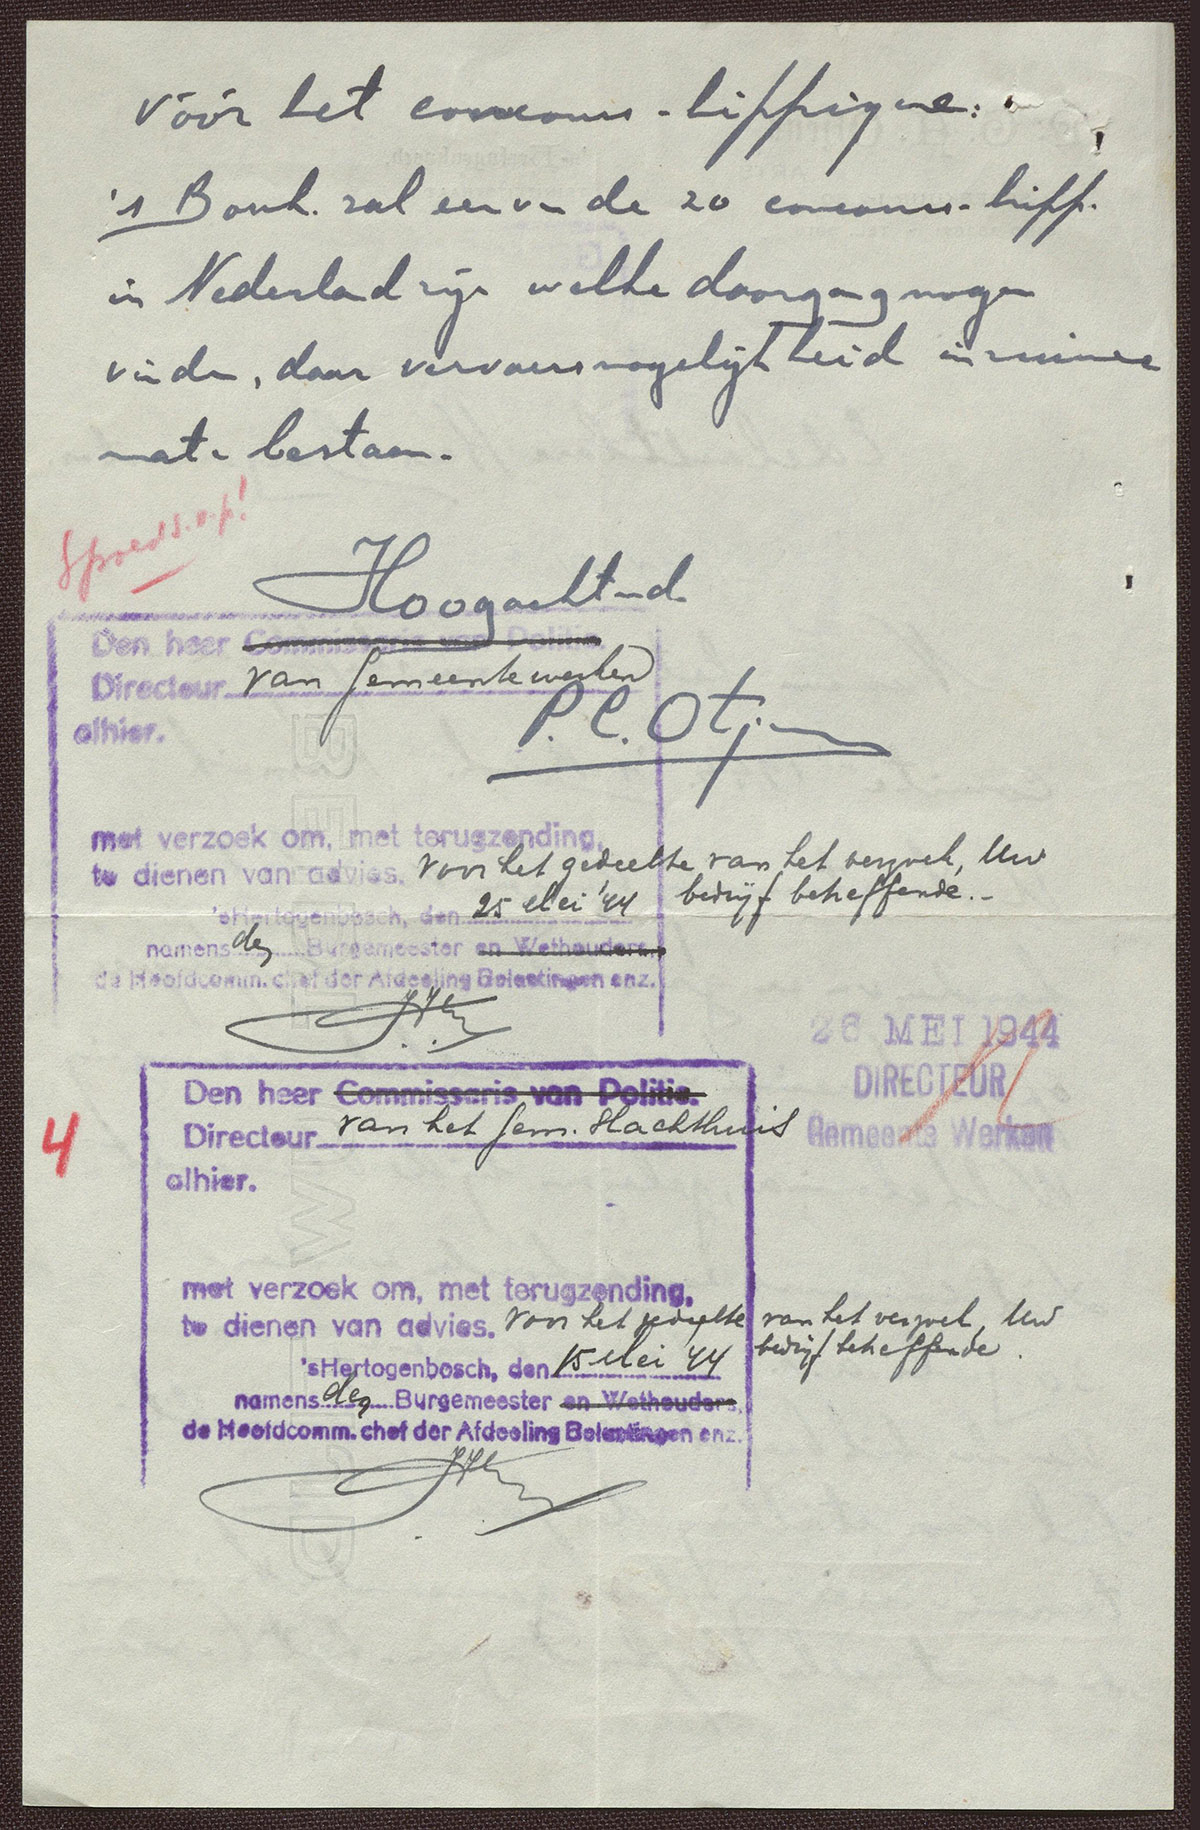 vóór het concours-hippique.
's Bosch. zal een van de 20 concours-hipp.
in Nederland zijn welke doorgang mogen
vinden, daar vervoersmogelijkheid in ruime
mate bestaan.
Spoed s.v.p!
Hoogachtend
Den heer Commissaris van Politie.
Directeur van Gemeentewerken
alhier.
P. C. Otj
met verzoek om, met terugzending,
te dienen van advies. voor het gedeelte van het verzoek, Uw
bedrijf betreffende.-
'sHertogenbosch, den 25 Mei '44
namens den Burgemeester en Wethouders,
de Hoofdcomm. chef der Afdeeling Belastingen enz.
26 MEI 1944
DIRECTEUR
Gemeente Werken
4
Den heer Commissaris van Politie.
Directeur van het Gem. Slachthuis
alhier.
met verzoek om, met terugzending,
te dienen van advies. voor het gedeelte van het verzoek, Uw
bedrijf betreffende.
'sHertogenbosch, den 15 Mei '44
namens den Burgemeester en Wethouders,
de Hoofdcomm. chef der Afdeeling Belastingen enz.